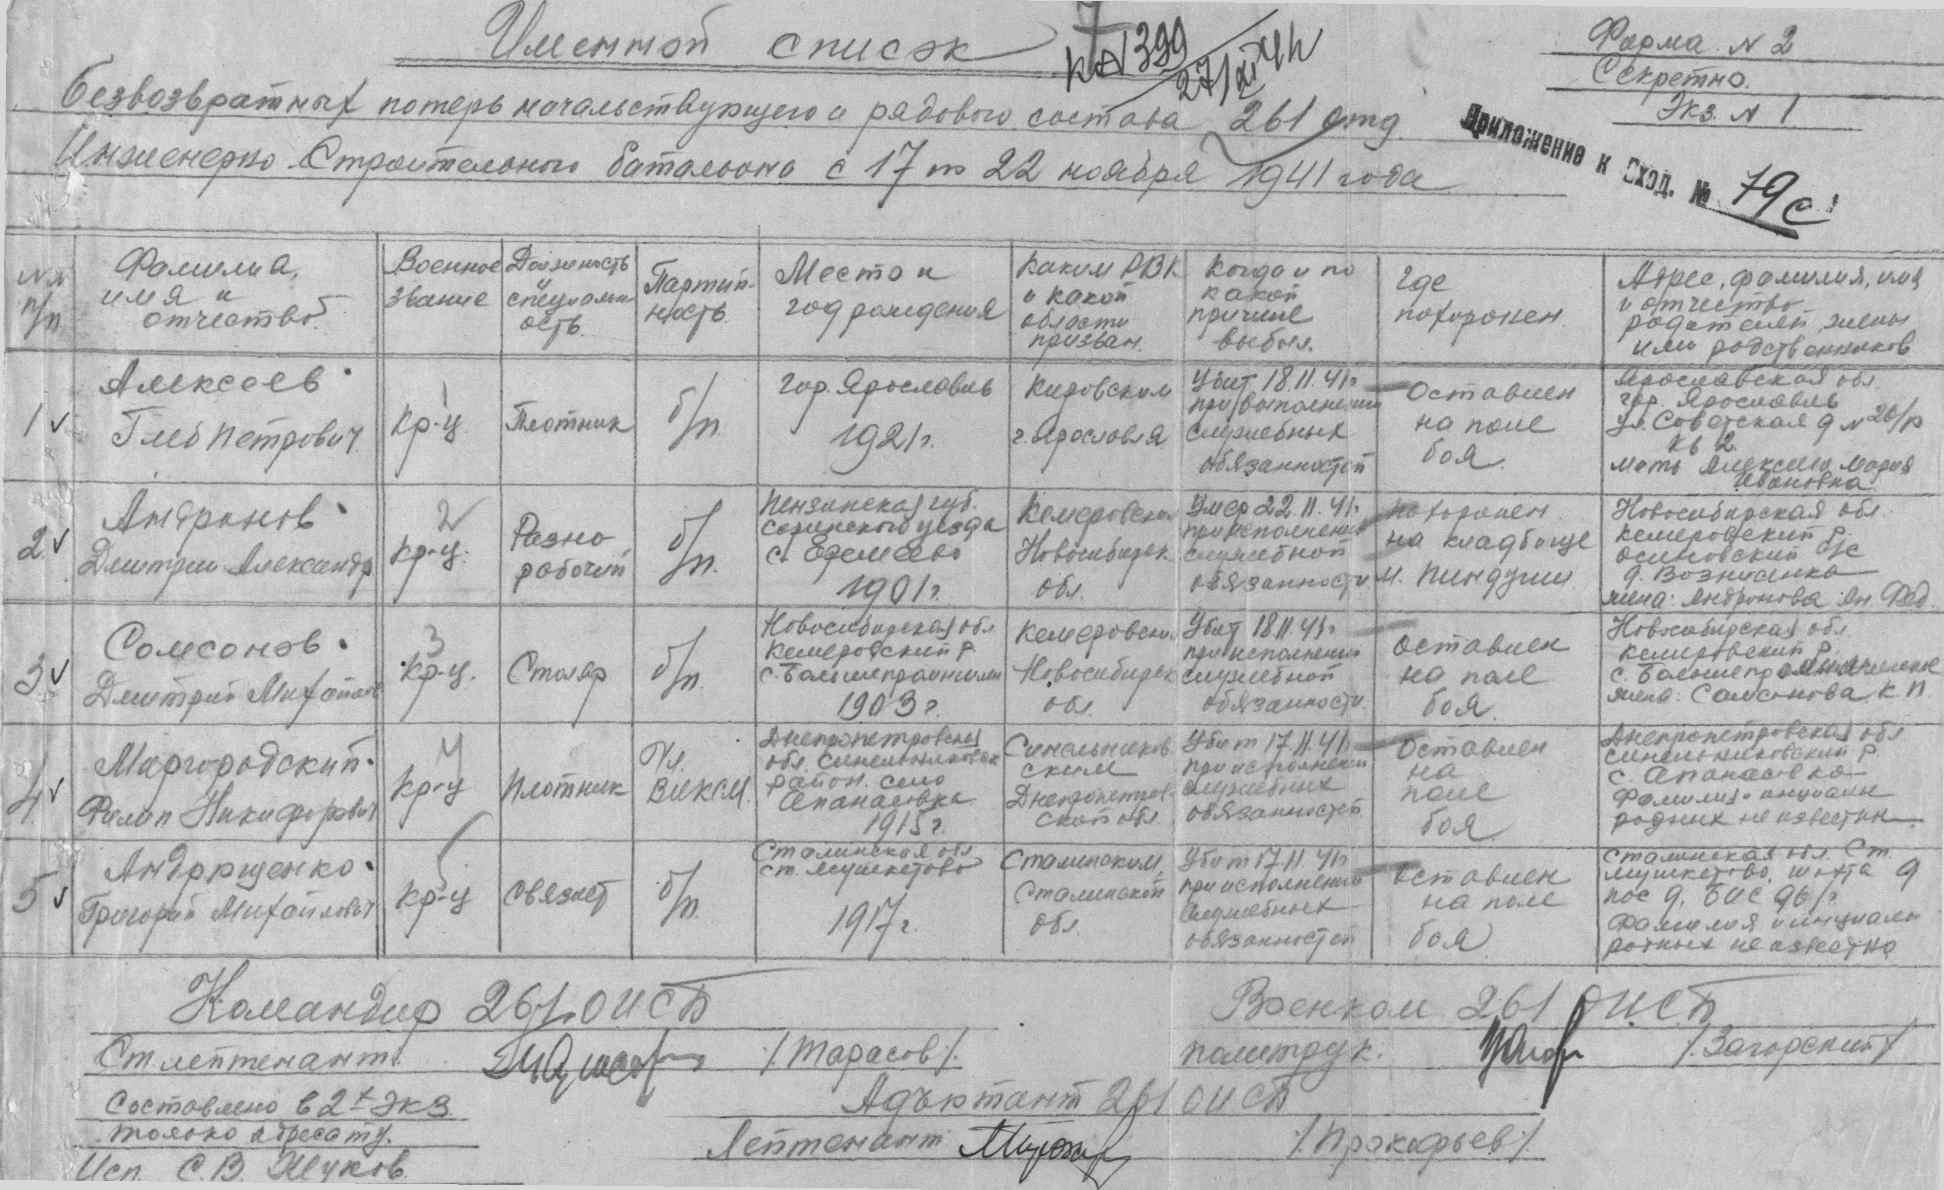 Именной список
КА 1399
27/XI 41г
Форма N 2
Секретно.
Экз. N 1
безвозвратных потерь начальствующего и рядового состава 261 отд.
Инженерно Строительного батальона с 17 по 22 ноября 1941 года
Приложение к Вход. № 79с
NN п/п
Фамилия, имя и отчество.
Военное звание
Должность и специальность.
Партийность.
Место и год рождения
Каким РВК и какой области призван.
Когда и по какой причине выбыл.
Где похоронен.
Адрес, фамилия, имя и отчество родителей, жены или родственников
1
Алексеев
Глеб Петрович
1
кр-ц
Плотник
б/п.
гор. Ярославль
1921г.
Кировским
г. Ярославля
Убит 18.11.41г.
при выполнении
служебных
обязанностей
Оставлен
на поле
боя.
Ярославская обл.
гор. Ярославль
ул. Советская д N 20/
кв 2.
мать Алексеева Мария
Ивановна
2
Андронов
Дмитрий Александр
2
кр-ц.
Разно
рабочий
б/п.
Пензинская губ.
уезда
с.
1901г.
Кемеровским
Новосибирск
обл.
Умер 22.11.41г.
при исполнении
служебной
обязанности
похоронен
на кладбище
м. Пиндуши
Новосибирская обл.
Кемеровский р.
Осиновский с/с
д.
жена: Андронова Ан. Фед.
3
Самсонов
Дмитрий Михайлов
3
кр-ц.
Столяр
б/п.
Новосибирская обл
Кемеровский р.
с.
1903г.
Кемеровским
Новосибирск
обл.
Убит 18.11.41г.
при исполнении
служебной
обязанности.
Оставлен
на поле
боя.
Новосибирская обл.
Кемеровский р.
с.
жена: Самсонова К П.
4
Миргородский
Филип Никифорович
4
кр-ц
Плотник
Чл.
ВЛКСМ.
Днепропетровская
обл. Синельниковск
район. село
Апанасовка
1915г.
Синельников
ским
Днепропетров
ской обл
Убит 17.11.41г.
при исполнении
служебных
обязанностей
Оставлен
на
поле
боя
Днепропетровская обл
Синельниковский р.
с. Апанасовка
Фамилия инициалы
родных не известны
5
Андрющенко
Григорий Михайлович
5
кр-ц
Связист
б/п.
Сталинская обл
ст. Мушкетово
1917г.
Сталинским,
Сталинской
обл.
Убит 17.11.41г.
при исполнении
служебных
обязанностей
Оставлен
на поле
боя
Сталинская обл. Ст.
Мушкетово, шахта 9
пос 9,
Фамилия и инициалы
родных не известно
Командир 261 ОИСБ
Ст лейтенант /Тарасов/.
Военком 261 ОИСБ
политрук. /Загорский/
Адъютант 261 ОИСБ
Лейтенант /Прокофьев/.
Составлено в 2х экз.
только адресату.
Исп. С.В. Жуков.